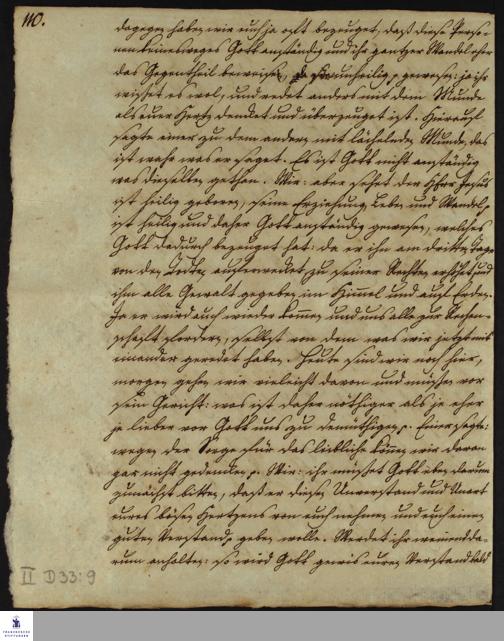 110.
dagegen haben wir euch ja oft bezeuget, daß diese Perso-
nen keinesweges Gott anständig und ihr gantzer Wandel eher
das Gegentheil beweisen, da sie unheilig gewesen: ja ihr
wisset es wol, und redet anders mit dem Munde
als euer Hertz dencket und überzeuget ist. Hierauf
sagte einer zu dem andern mit lächelnden Munde, das
ist wahr was er saget. Es ist Gott nicht anständig
was dieselben gethan. Wir: aber sehet der HErr Jesus
ist heilig geboren, seine Erziehung, Leben und Wandel
ist heilig und daher Gott anständig gewesen, welches
Gott dadurch bezeuget hat: da er ihn am dritten Tage
von den Todten auferwecket, zu seiner Rechten erhöhet und
ihm alle Gewalt gegeben im Himmel und auf Erden.
Ja er wird auch wieder kommen und uns alle zur Rechen-
schafft fordern, selbst von dem was wir jetzt mit
einander geredet haben. Heute sind wir noch hier,
morgen gehen wir vieleicht davon und müssen vor
sein Gericht: was ist daher nöthiger als je eher
je lieber vor Gott uns zu demüthigen p. Einer sagte:
wegen der Sorge für das leibliche können wir daran
gar nicht gedencken p. Wir: ihr müsset Gott eben darum
zunächst bitten, daß er diesen Unverstand und Unart
eures bösen Hertzens von euch nehmen und euch einen
guten Verstand geben wolle. Werdet ihr weinend da-
rum anhalten: so wird Gott gewis euren Verstand bald
II D33:9
FRANCKESCHE
STIFTUNGEN